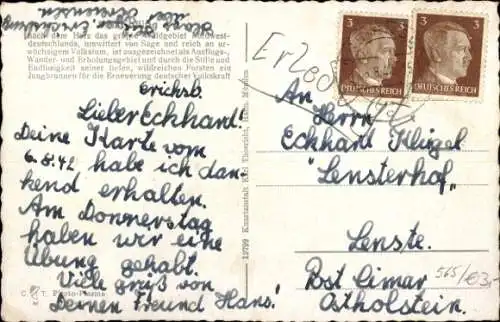 nach dem Harz das größte Waldgebiet Nordwest-
deutschlands, umwittert von Sage und reich an
urwüchsigem Volkstum, ist ausgezeichnet als Ausflugs-,
Wander- und Erholungsgebiet und durch die Stille und
Endlosigkeit seiner tiefen, wildreichen Forsten ein
Jungbrunnen für die Erneuerung deutscher Volkskraft
Erichsb.
Lieber Eckhard!
Deine Karte vom
6.8.42 habe ich dan-
kend erhalten.
Am Donnerstag
haben wir eine
Übung gehabt.
Viele grüß von
Deinen Freund Hans!
Photo-
12799 Kunstanstalt Karl Thoericht, Hann. Münden
3 3
DEUTSCHES REICH DEUTSCHES REICH
An
Herrn
Eckhard
"Lensterhof"
Lenste.
Post Cismar
Ostholstein.